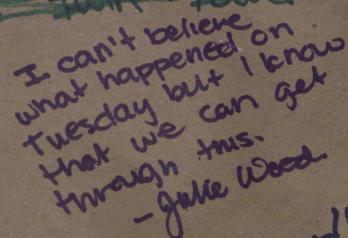 I can't believe
what happened on
Tuesday but I know
that we can get
through this.
- Julie Wood